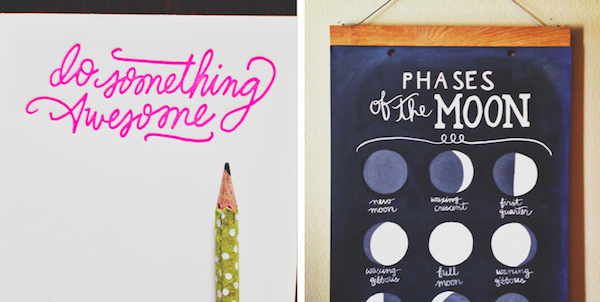 do something
Awesome
PHASES
of the MOON
new
moon
waxing
crescent
first
quarter
waxing
gibbous
full
moon
waning
gibbous